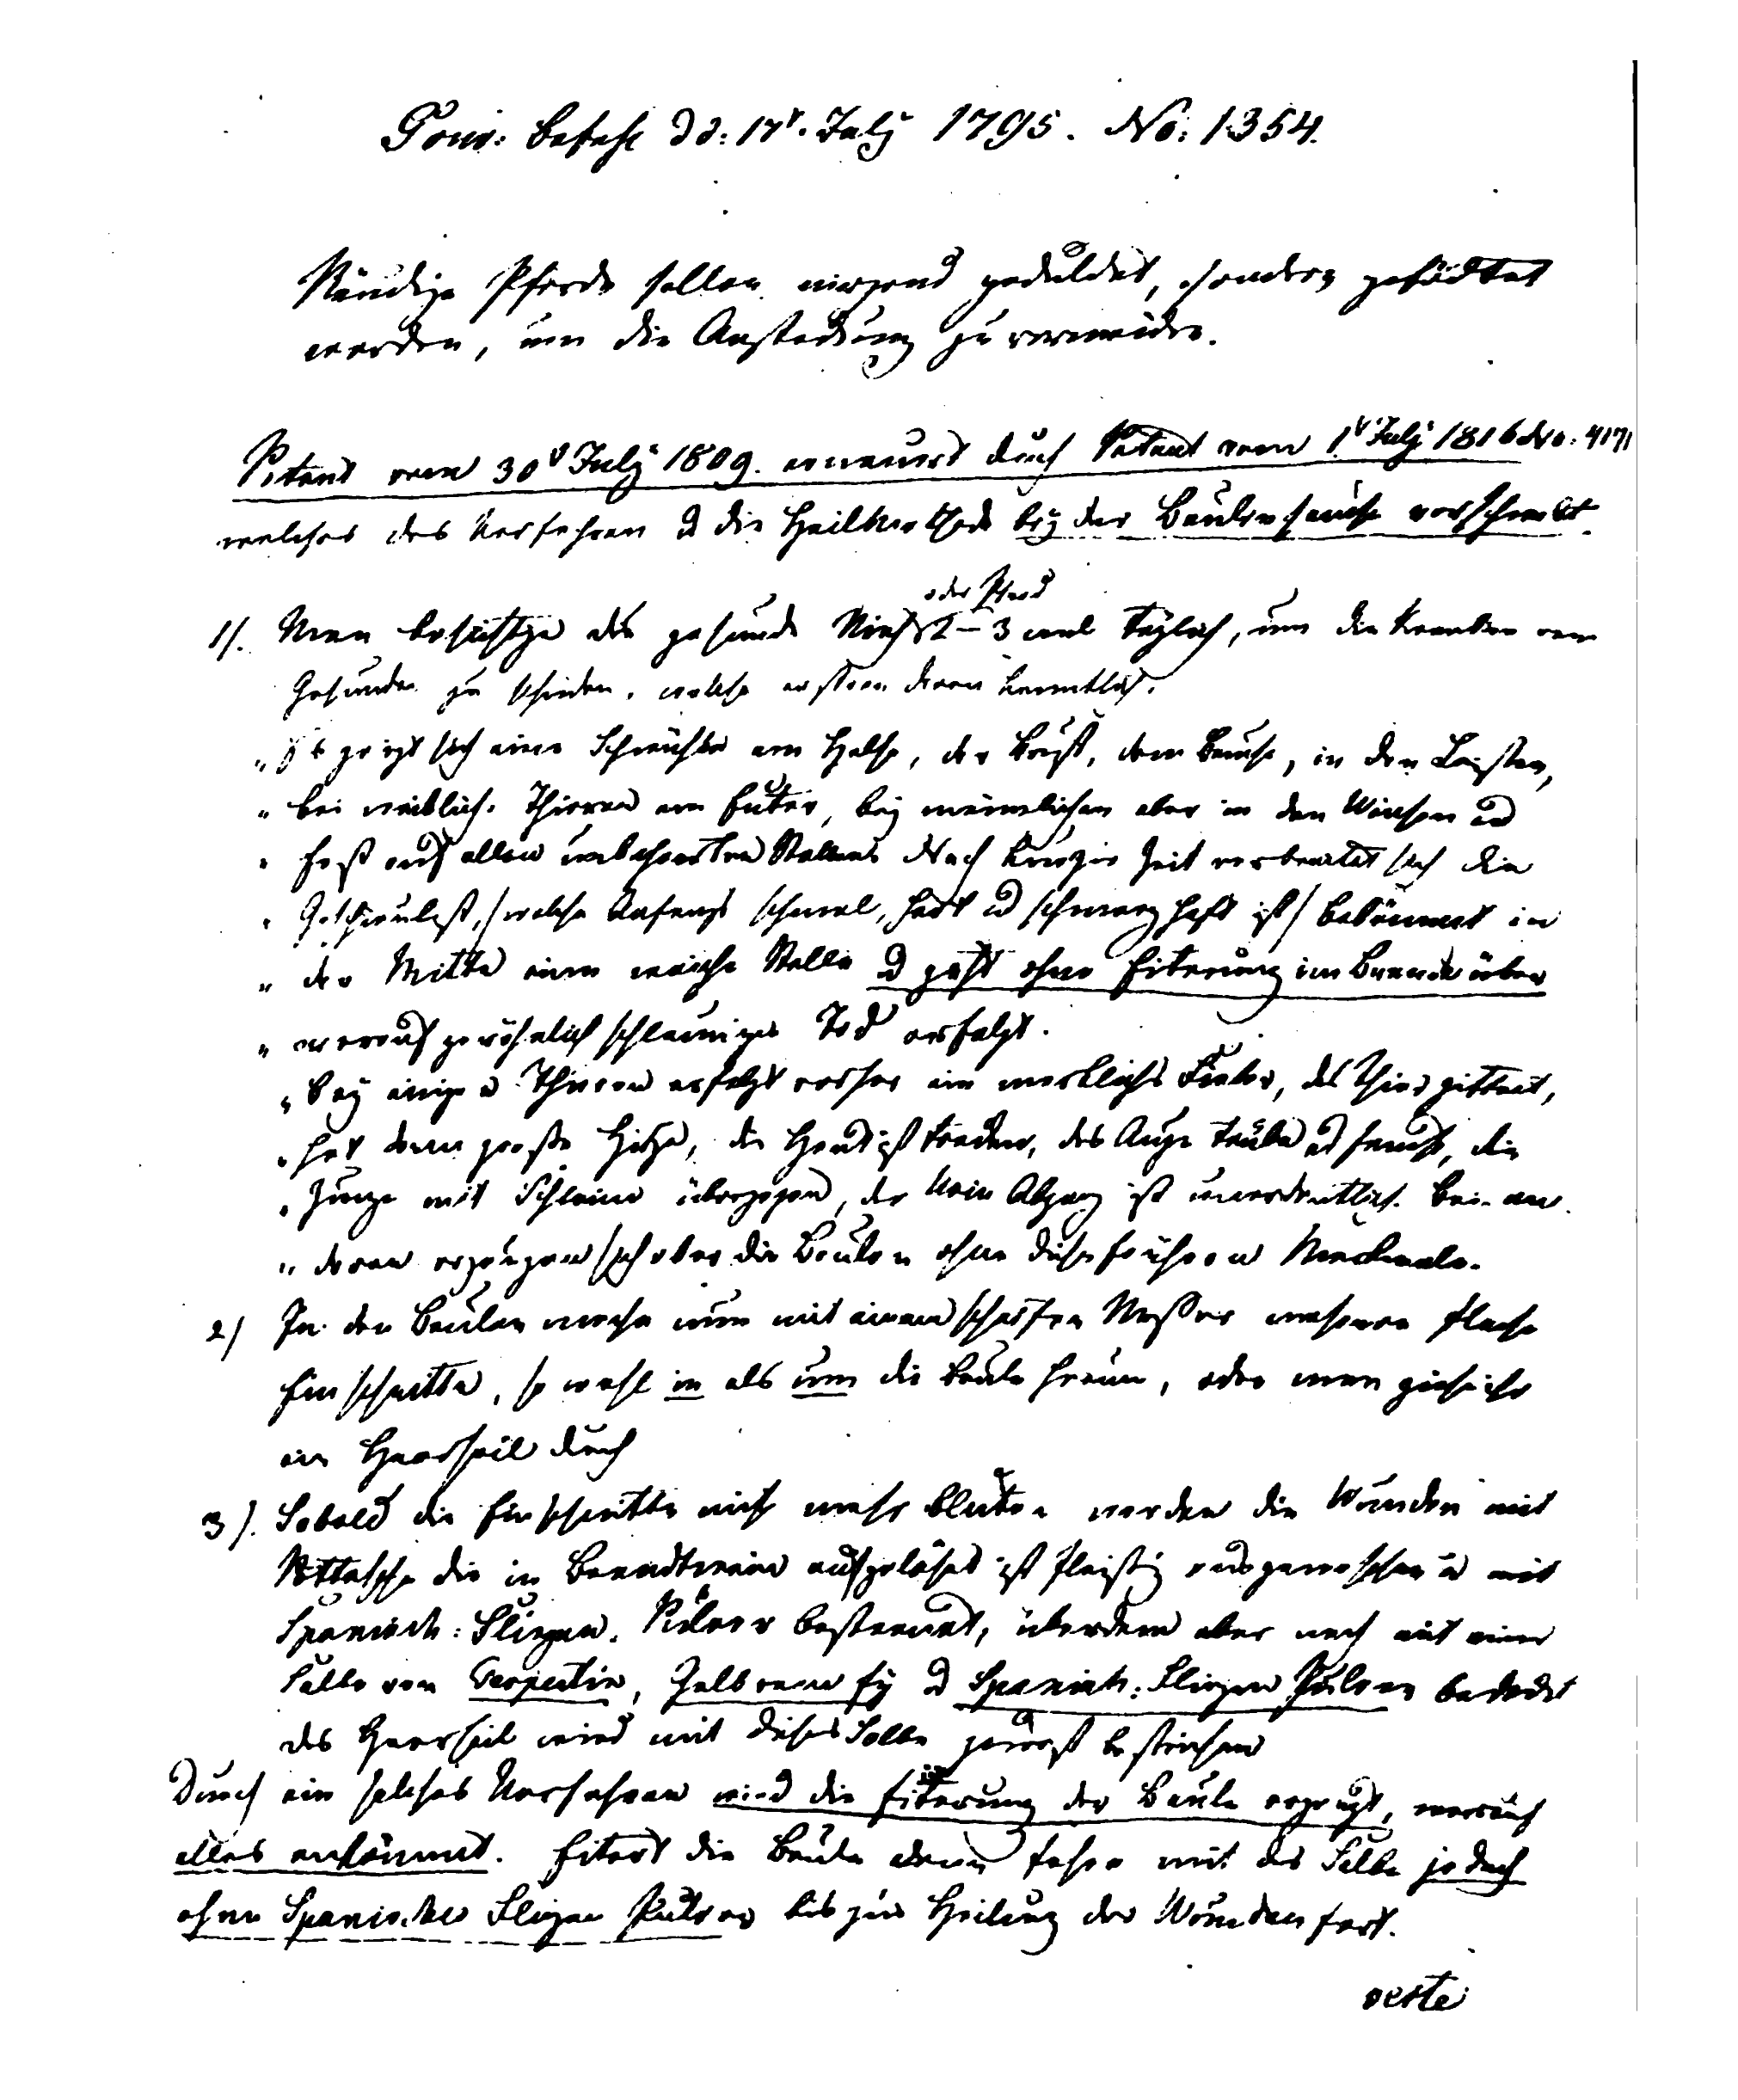 Gouv: Befehl dd: 17t. July 1795. No: 1354.
Räudige Pferde sollen nirgend geduldet, sondern getödtet
werden, um die Ansteckung zu vermeiden.
Patent vom 30t July 1809. erneuert durch Patent vom 1t July 1816 No: 4171
welches das Verfahren u die Heilmethode bey der Beulenseuche vorschreibt.
oder Pferd
1/. Man besichtige das gesunde Vieh 2–3 mal täglich, um die Kranken vom
Gesunden zu scheiden, welche erstere daran kenntlich.
„ Es zeigt sich eine Geschwulst am Halse, der Brust, dem Bauche, in den Leisten,
„ bei weiblich. Thieren am Euter, bey männlichen aber in den Weichen u
„ fast auf allen unbehaarten Stellen. Nach kurzer Zeit verbreitet sich die
„ Geschwulst, /welche Anfangs schmal, hart u schmerzhaft ist/ bekömmt in
„ der Mitte eine weiche Stelle u geht ohne Eiterung im Brande über
„ worauf gewöhnlich schleuniger Tod erfolgt.
„ Bey einigen Thieren erfolgt vorher ein merkliches Fieber, das Thier zittert,
„ hat dann große Hitze, die Haut ist trocken, das Auge trübe u feucht, die
„ Zunge mit Schleim überzogen, der Urin Abgang ist unordentlich. Bei an
„ deren erzeugen sich aber die Beulen ohne diese früheren Merkmale.
2/ In den Beulen mache man mit einem scharfen Messer mehrere flache
Einschnitte, so wohl in als um die Beule herum, oder man ziehe ihr
ein Haarseil durch
3/. Sobald die Einschnitte nicht mehr bluten werden die Wunden mit
Pottasche die in Brandtwein aufgelöset ist fleißig ausgewaschen u mit
Spanisch: Fliegen. Pulver bestreuet, überdem aber noch mit einer
Salbe von Terpentin, Gelb vom Ey u Spanisch: Fliegen Pulver bedeckt
das Haarseil wird mit dieser Salbe zuerst bestrichen
Durch ein solches Verfahren wird die Eiterung der Beule erzeugt, worauf
alles ankömmt. Eitert die Beule dann fahre mit der Salbe jedoch
ohne Spanischer Fliegen Pulver bis zur Heilung der Wunden fort.